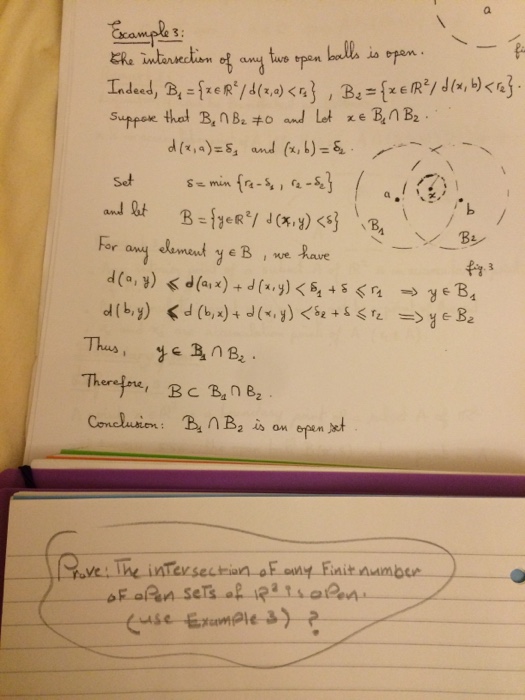 a
Example 3:
The intersection of any two open balls is open.
Indeed, B₁ = {x∈ℝ²/ d(x,a) < r₁} , B₂ = {x∈ℝ²/ d(x,b) < r₂}.
Suppose that B₁ ∩ B₂ ≠ 0 and Let x ∈ B₁ ∩ B₂ .
d(x,a) = δ₁ and (x,b) = δ₂ .
Set δ = min {r₁-δ₁ , r₂-δ₂}
and let B = {y∈ℝ²/ d(x,y) < δ}
a x b
B₁ B₂
fig. 3
For any element y ∈ B , we have
d(a,y) ≤ d(a,x) + d(x,y) < δ₁ + δ ≤ r₁ ⟹ y ∈ B₁
d(b,y) ≤ d(b,x) + d(x,y) < δ₂ + δ ≤ r₂ ⟹ y ∈ B₂
Thus, y ∈ B₁ ∩ B₂ .
Therefore, B ⊂ B₁ ∩ B₂ .
Conclusion: B₁ ∩ B₂ is an open set .
Prove: The intersection of any Finit number
of open sets of ℝ² is open.
(use Example 3) ?